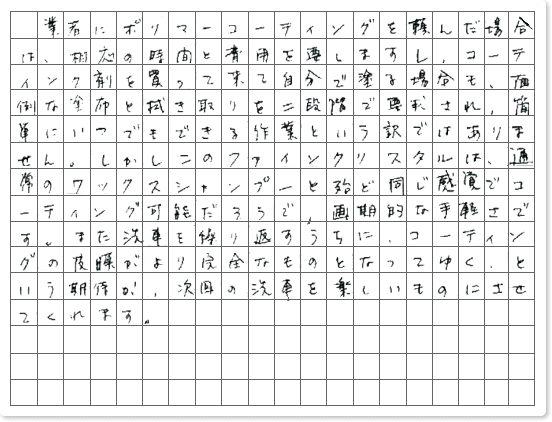 業者にポリマーコーティングを頼んだ場合
は、相応の時間と費用を要しますし、コーテ
ィング剤を買って来て自分で塗る場合も、面
倒な塗布と拭き取りを二段階で要求され、簡
単にいつでもできる作業という訳ではありま
せん。しかしこのファインクリスタルは、通
常のワックスシャンプーと殆ど同じ感覚でコ
ーティング可能だそうで、画期的な手軽さで
す。また洗車を繰り返すうちに、コーティン
グの皮膜がより完全なものとなってゆく、と
いう期待が、次回の洗車を楽しいものにさせ
てくれます。